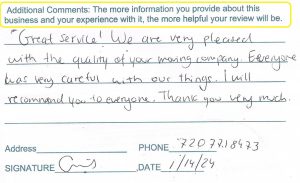 Additional Comments: The more information you provide about this
business and your experience with it, the more helpful your review will be.
"Great service! We are very pleased
with the quality of your moving company. Everyone
was very careful with our things. I will
recommend you to everyone. Thank you very much.
Address PHONE 720 7718473
SIGNATURE DATE 1/14/24